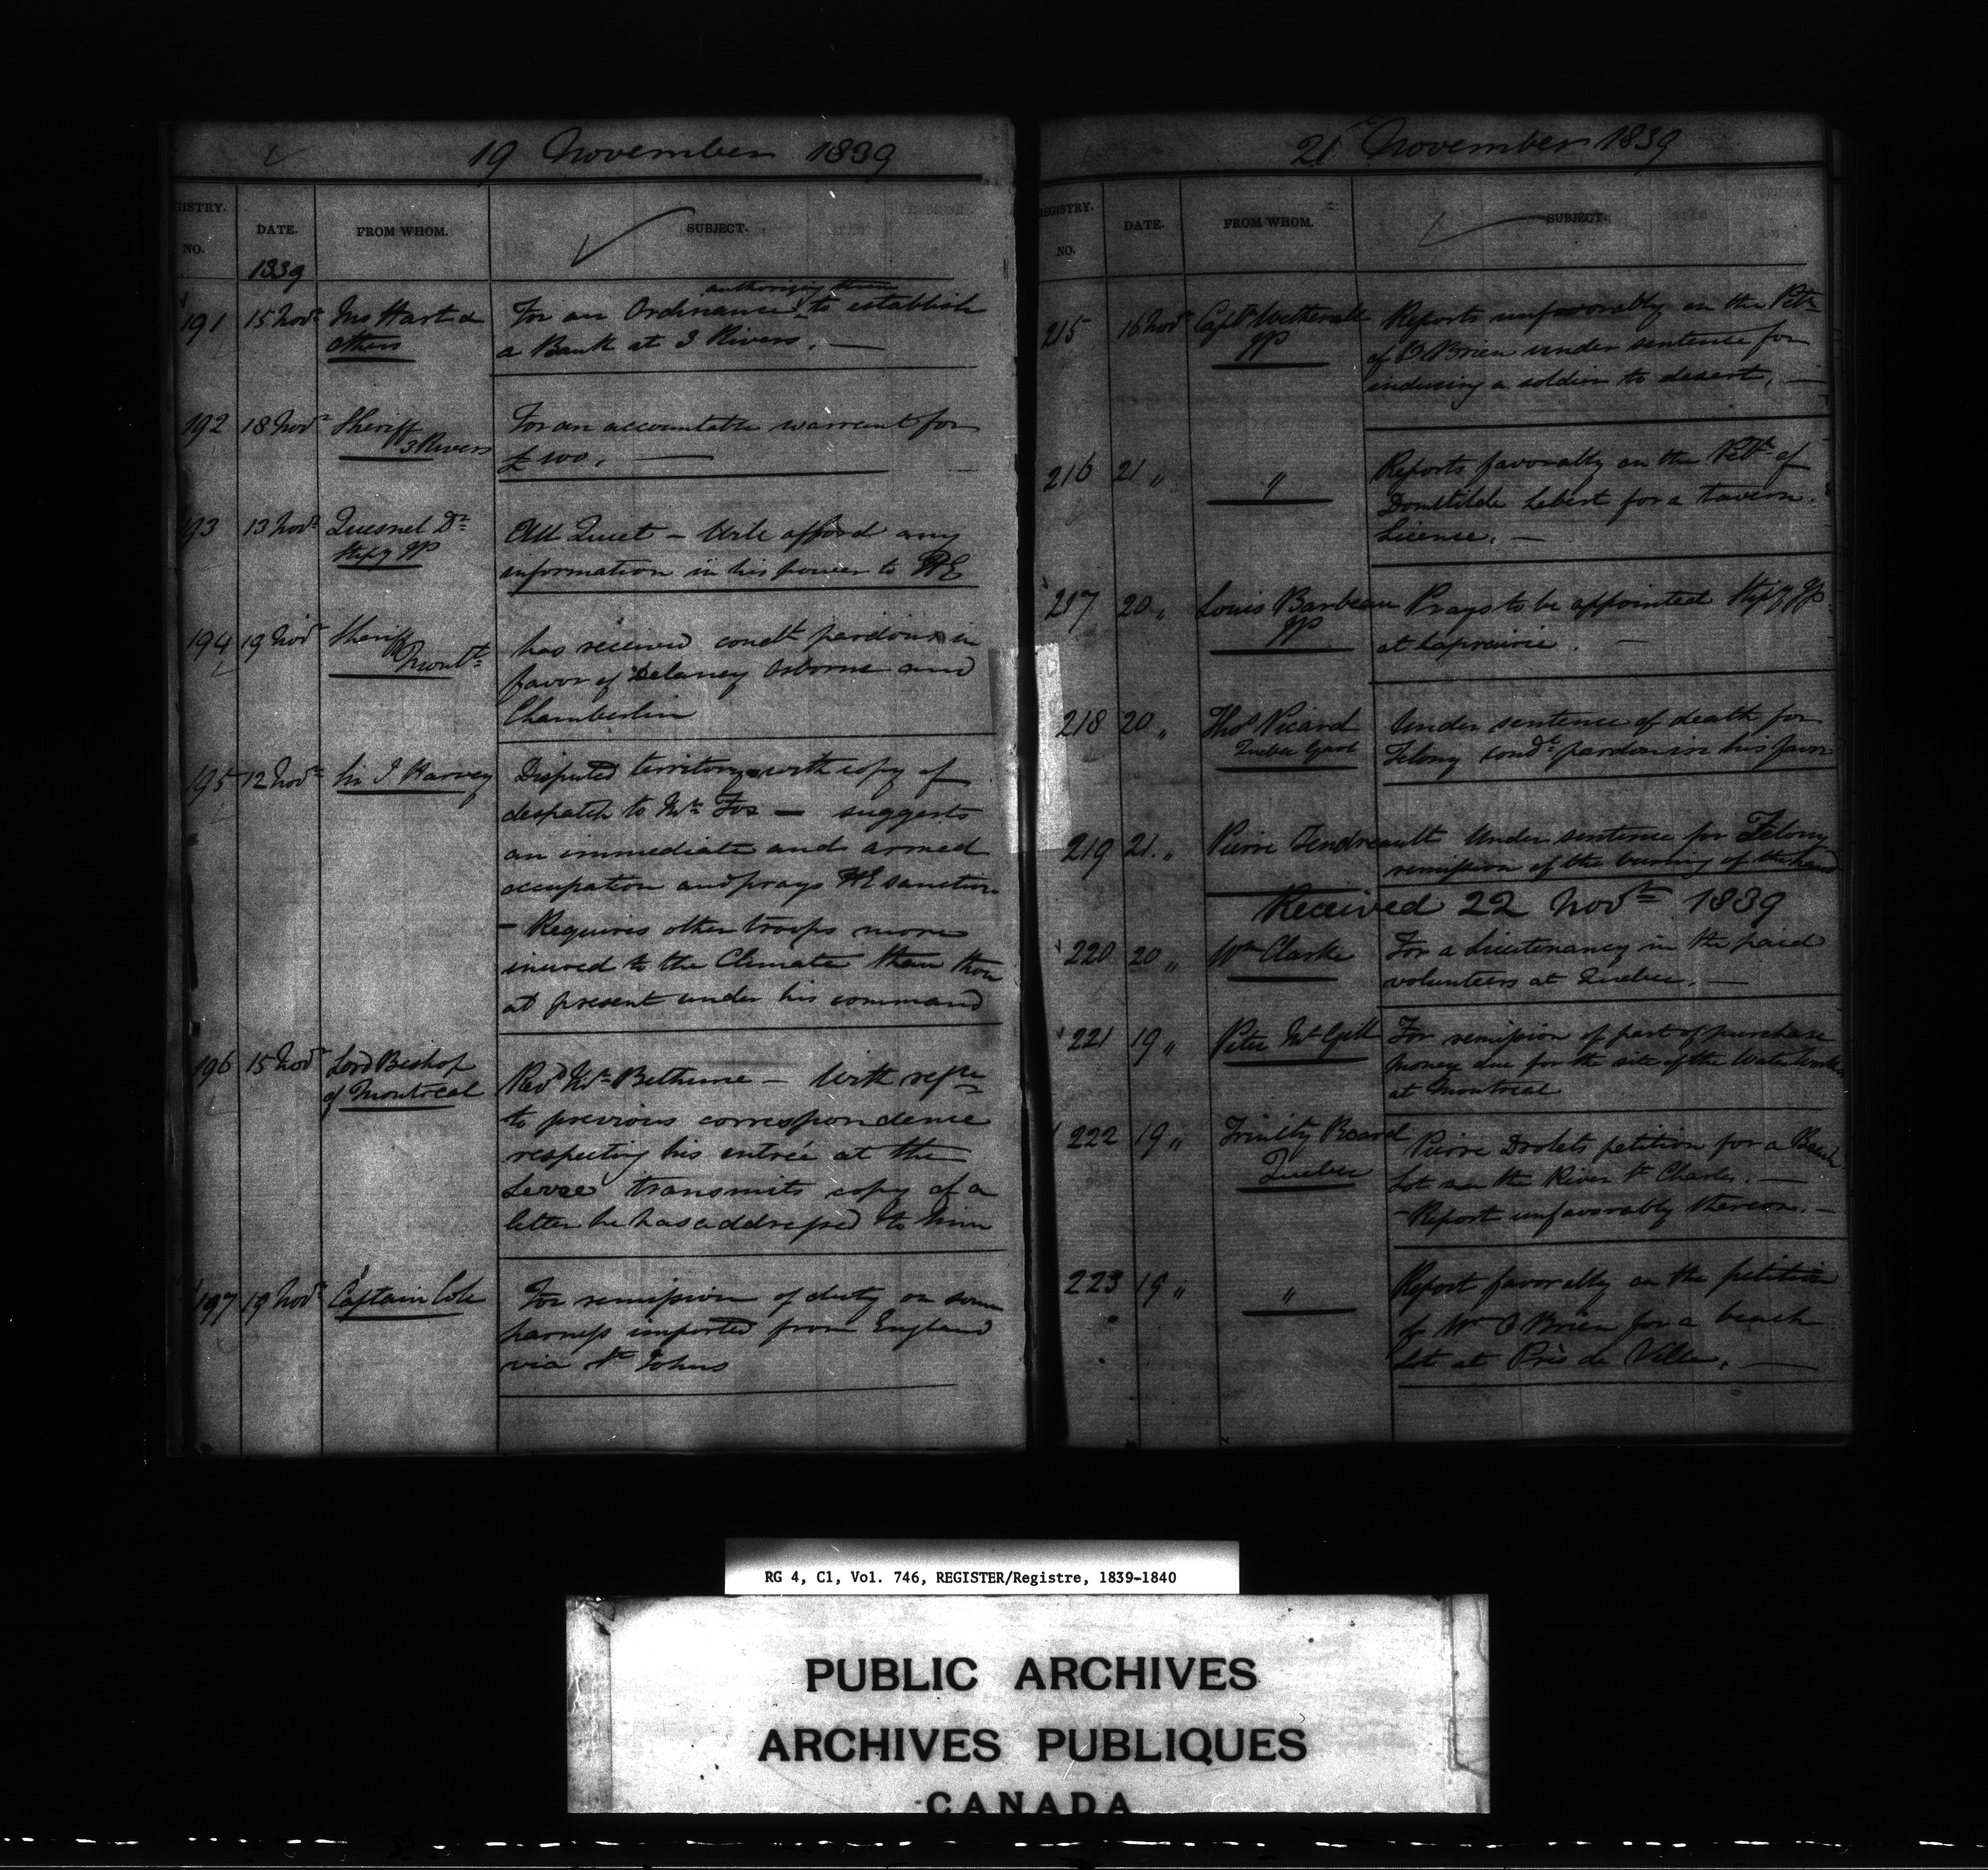 19 November 1839
GISTRY.
NO.
DATE.
FROM WHOM.
SUBJECT.
1839
191 15 Novr Hart & others
For an Ordinance authorizing them to establish
a Bank at 3 Rivers. —
192 18 Novr Sheriff 3 Rivers
For an accountable warrant for
£100. —
193 13 Novr Quesnel Dr Stipy JP
All Quiet – Will afford any
information in his power to HE
194 19 Novr Sheriff Montl
has received condl pardons in
favor of Delaney Osborne and
Chamberlin
195 12 Novr Sir J Harvey
Disputed territory with copy of
despatch to Mr Fox — suggests
an immediate and armed
occupation and prays HE sanction
– Requires other troops more
inured to the Climate than those
at present under his command
196 15 Novr Lord Bishop of Montreal
Revd Mr Bethune – With refce
to previous correspondence
respecting his entrée at the
Levee transmits copy of a
letter he has addressed to him
197 19 Novr Captain Cole
For remission of duty on some
harness imported from England
via St Johns
21st November 1839
REGISTRY.
NO.
DATE.
FROM WHOM.
SUBJECT.
215 16 Novr Captn Wetherall JP
Reports unfavorably on the Petn
of O'Brien under sentence for
inducing a soldier to desert. —
216 21 " "
Reports favorably on the Petn of
Domitilde Lebert for a tavern
License. —
217 20 " Louis Barbeau JP
Prays to be appointed Stipy JP
at Laprairie. —
218 20 " Thos Picard Quebec Gaol
Under sentence of death for
Felony condl pardon in his favor
219 21 " Pierre Gendreault
Under sentence for Felony
remission of the burning of the hand
Received 22 Novr 1839
220 20 " Wm Clarke
For a Lieutenancy in the paid
volunteers at Quebec. —
221 19 " Peter McGill
For remission of part of purchase
money due for the site of the Water Works
at Montreal
222 19 " Trinity Board Quebec
Pierre Drolets petition for a Beach
Lot near the River St Charles. —
– Report unfavorably thereon. –
223 19 " "
Report favorably on the petition
of Wm O'Brien for a beach
lot at Près de Ville. —
RG 4, C1, Vol. 746, REGISTER/Registre, 1839-1840
PUBLIC ARCHIVES
ARCHIVES PUBLIQUES
CANADA